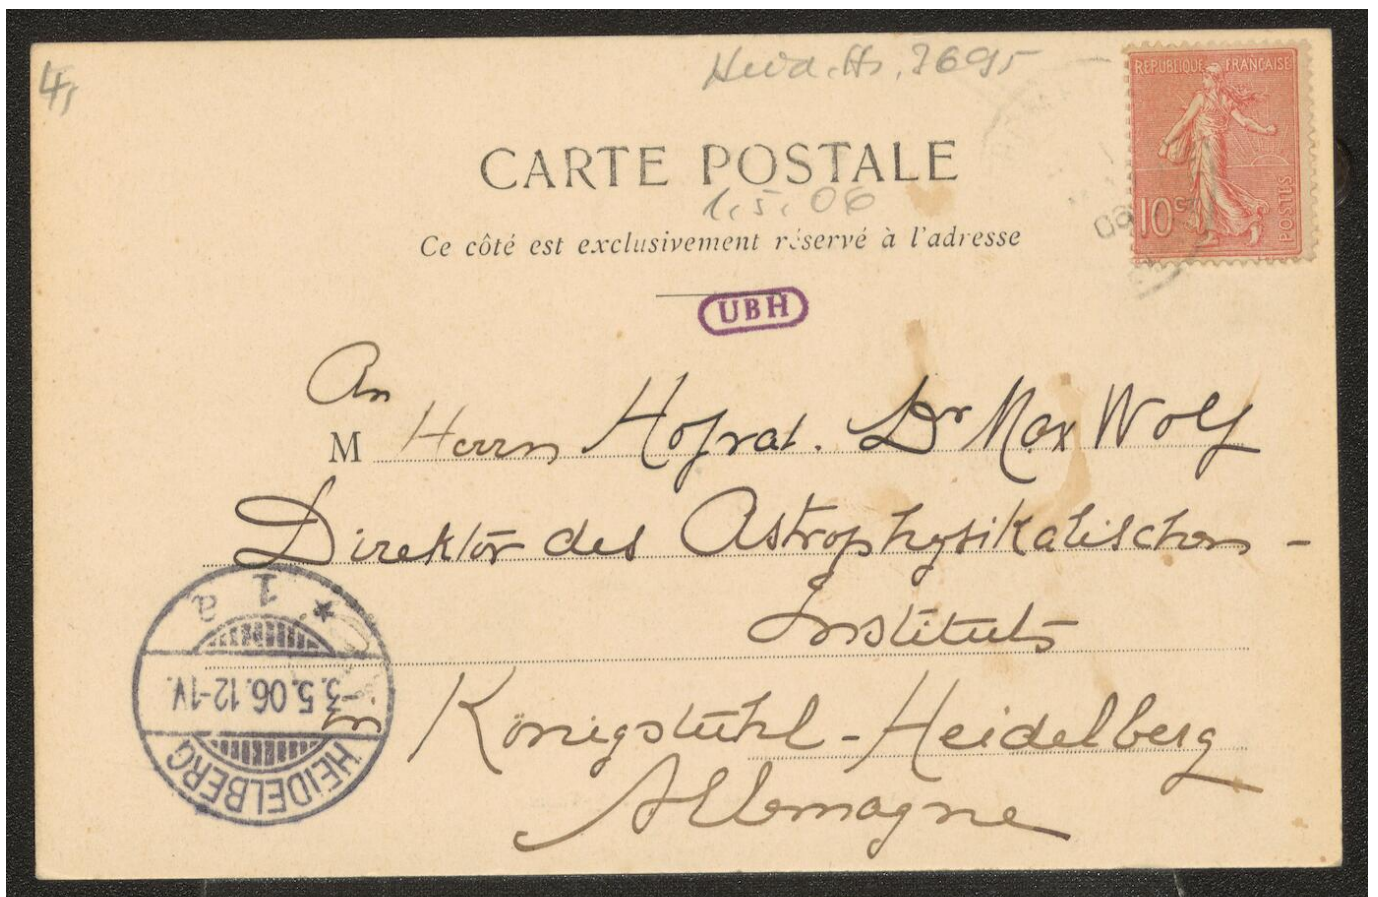 4,
Heid. Hs. 3695
REPUBLIQUE FRANÇAISE
10 c
POSTES
CARTE POSTALE
1.5.06
06
Ce côté est exclusivement réservé à l'adresse
UBH
An
M Herrn Hofrat. Dr Max Wolf
Direktor des Astrophysikalischen-
Instituts
in Königstuhl-Heidelberg
Allemagne
HEIDELBERG
3.5.06.12-1V.
1 a